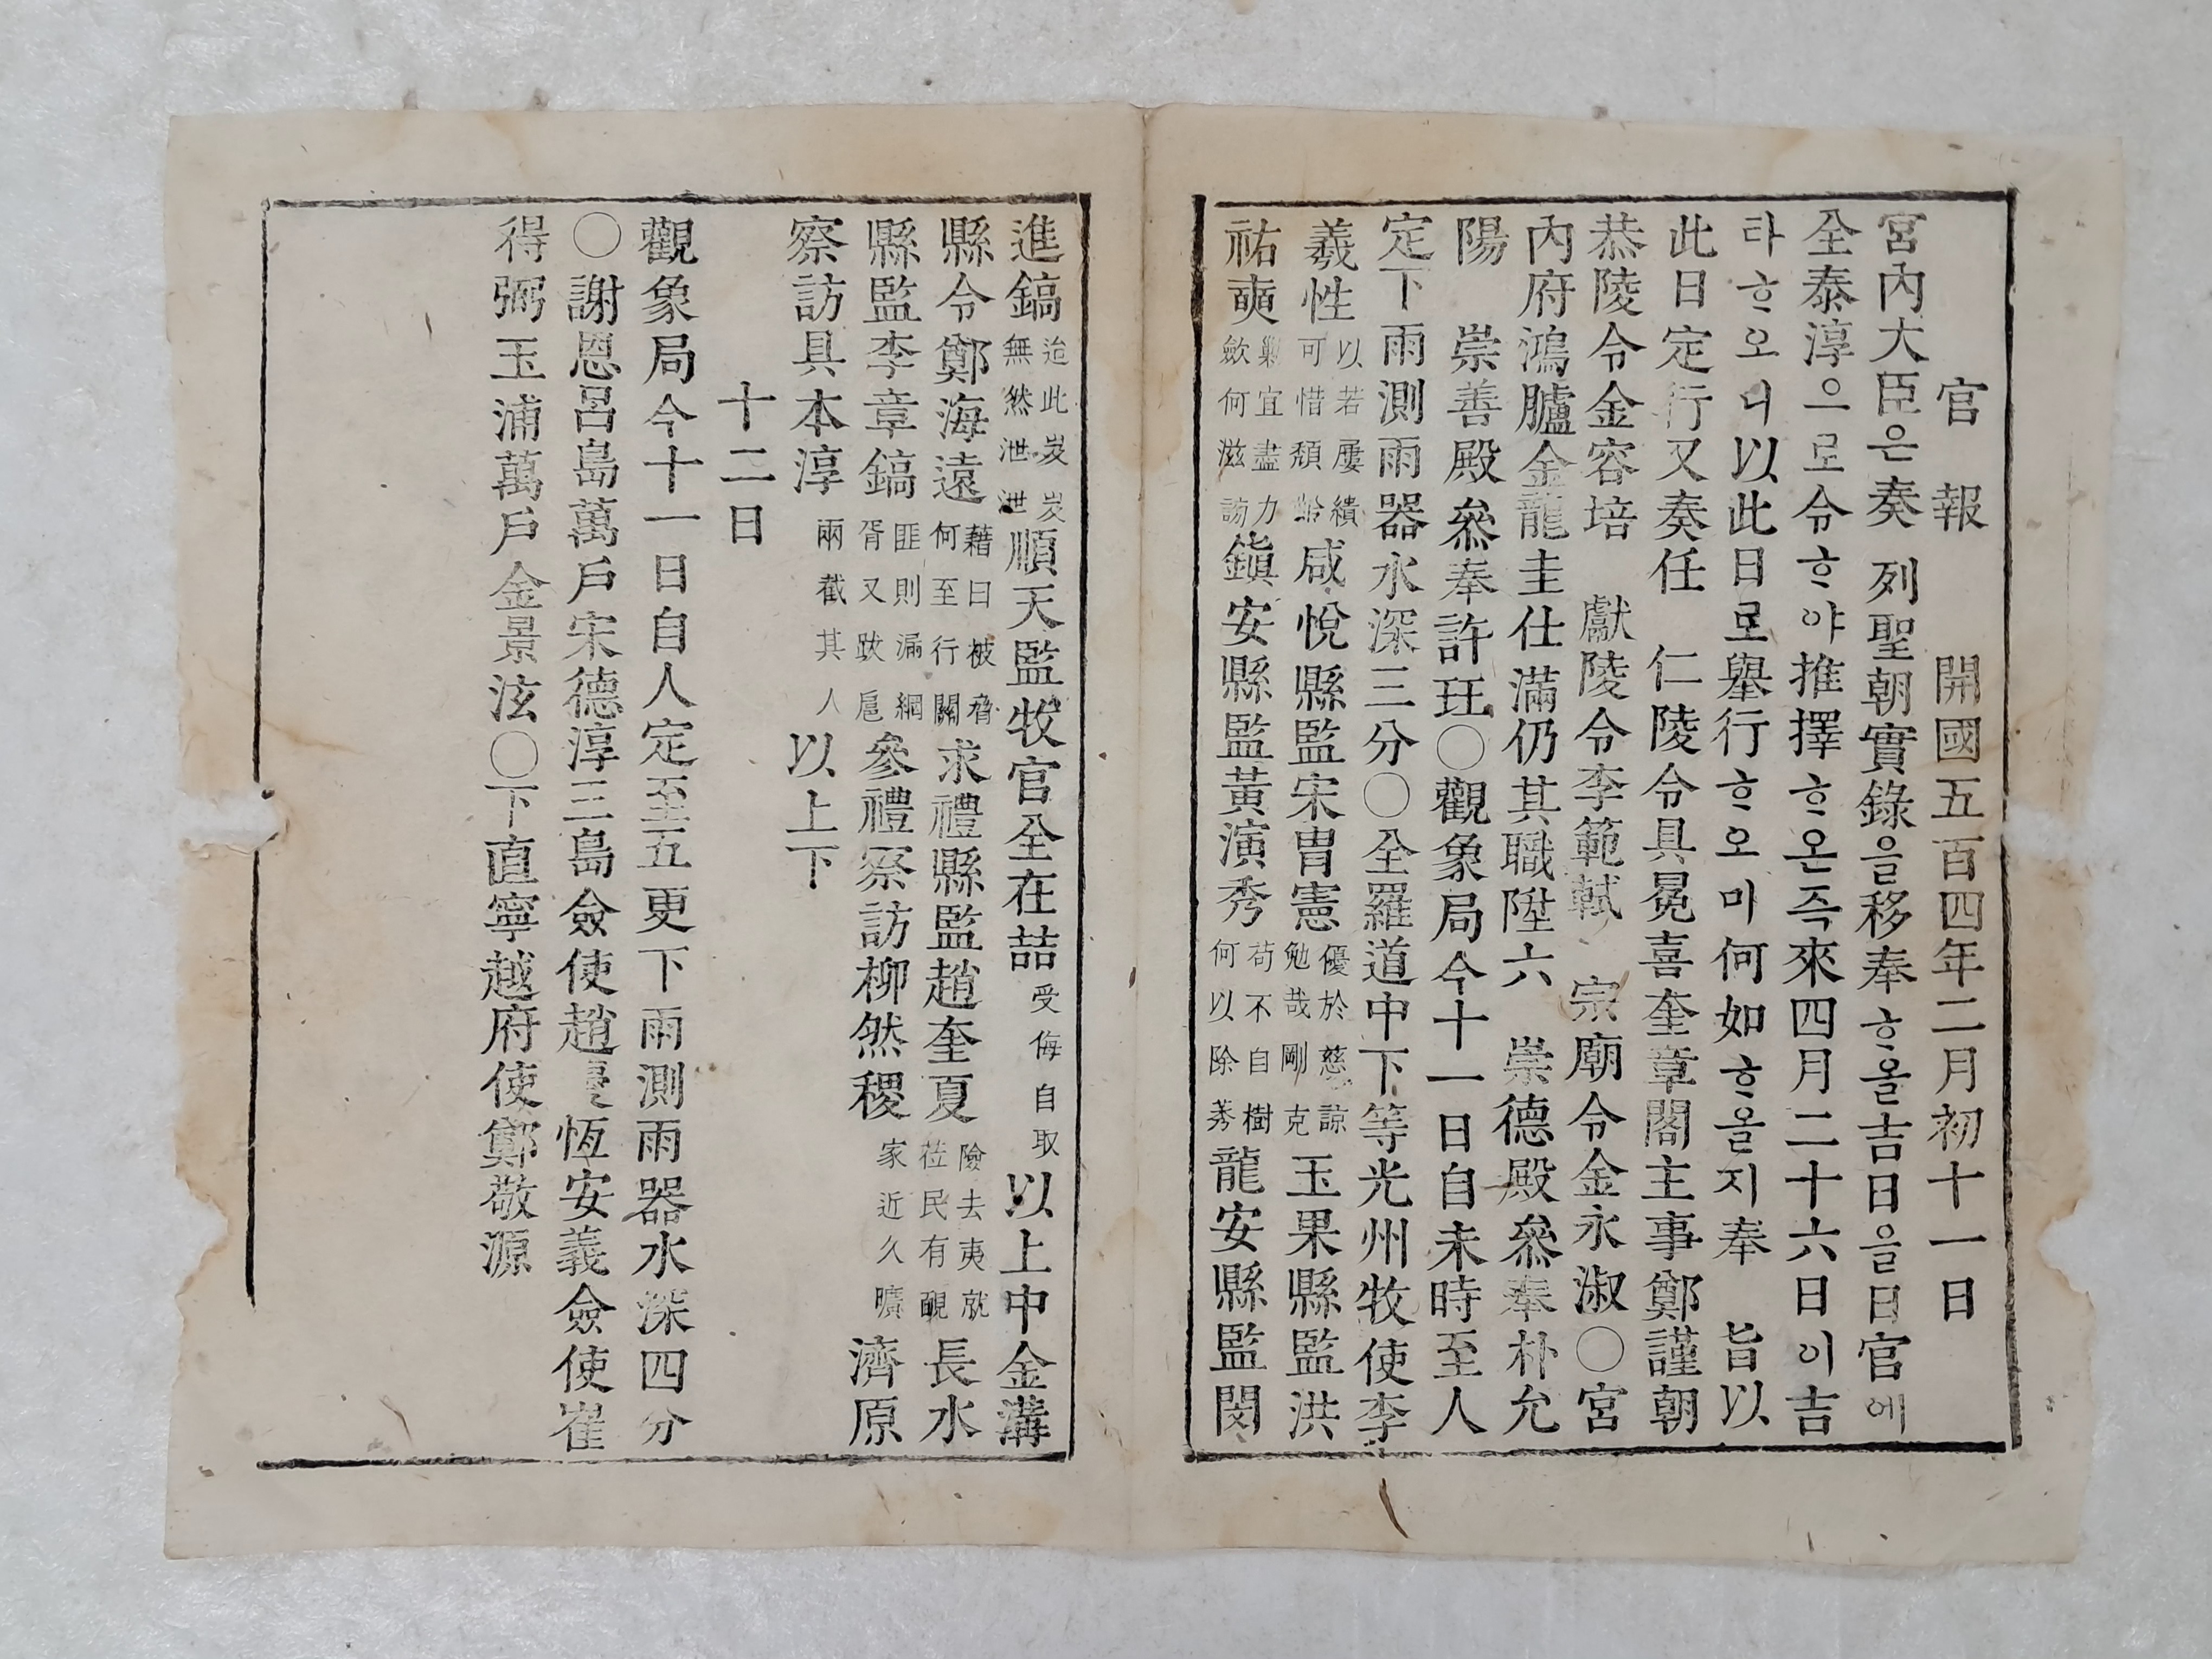 官報 開國五百四年二月初十一日
宮內大臣은奏 列聖朝實錄을移奉ᄒᆞ올吉日을日官에
全泰淳으로令ᄒᆞ야推擇ᄒᆞ온즉來四月二十六日이吉
타ᄒᆞ오니以此日로擧行ᄒᆞ오미何如ᄒᆞ올지奉 旨以
此日定行又奏任 仁陵令具冕喜奎章閣主事鄭謹朝
恭陵令金容培 獻陵令李範軾 宗廟令金永淑〇宮
內府鴻臚金龍圭仕滿仍其職陞六 崇德殿叅奉朴允
陽 崇善殿叅奉許玨〇觀象局今十一日自未時至人
定下雨測雨器水深三分〇全羅道中下等光州牧使李
羲性以若屢績可惜頹齡咸悅縣監宋冑憲優於慈諒勉哉剛克玉果縣監洪
祐奭宜盡力歛何滋謗鎭安縣監黃演秀苟不自樹何以除莠龍安縣監閔
進鎬迨此岌岌無然泄泄順天監牧官全在喆受侮自取以上中金溝
縣令鄭海遠藉曰被脅何至行關求禮縣監趙奎夏險去夷就莅民有靦長水
縣監李章鎬匪則漏網胥又跋扈參禮察訪柳然稷家近久曠濟原
察訪具本淳兩截其人以上下
十二日
觀象局今十一日自人定至五更下雨測雨器水深四分
〇謝恩呂島萬戶宋德淳三島僉使趙恆安義僉使崔
得弼玉浦萬戶金景泫〇下直寧越府使鄭敬源